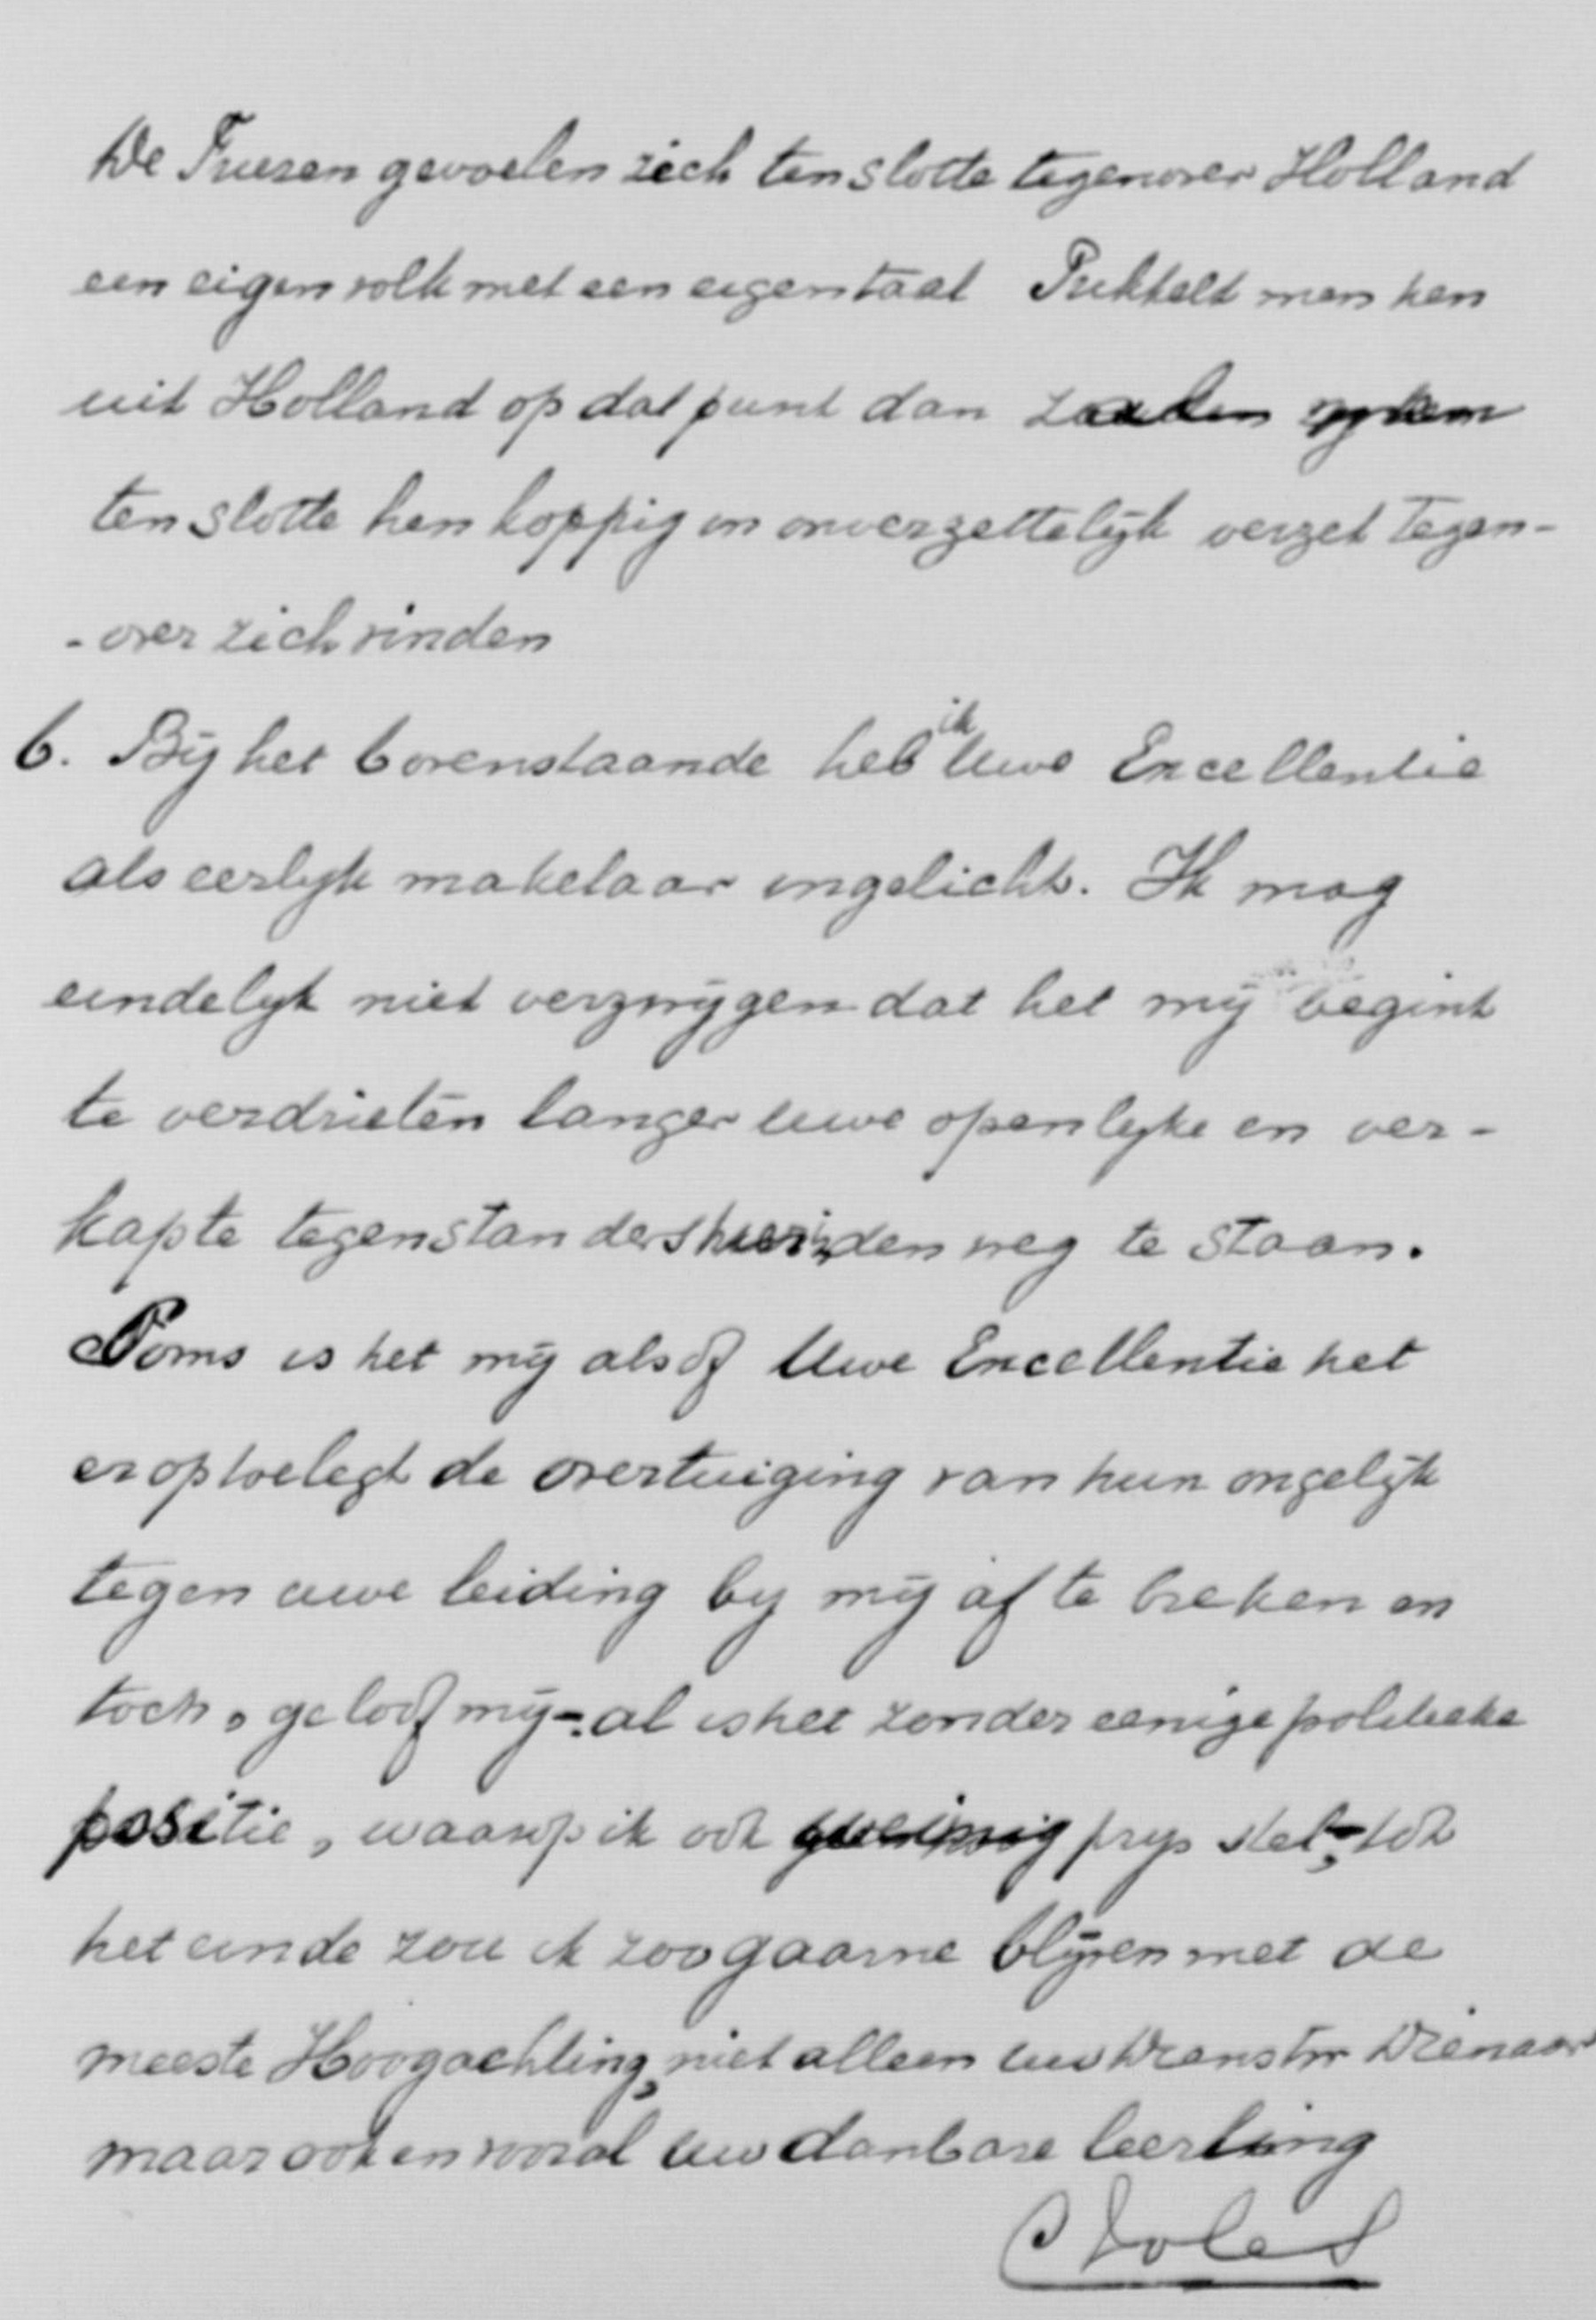 De Friezen gevoelen zich ten slotte tegenover Holland
een eigen volk met een eigen taal Prikkelt men hen
uit Holland op dat punt dan zoude
ten slotte hen koppig en onverzettelijk verzet tegen-
-over zich vinden
6. Bij het bovenstaande heb ik Uwe Excellentie
als eerlijk makelaar ingelicht. Ik mag
eindelijk niet verzwijgen dat het mij begint
te verdrieten langer uwe openlijke en ver-
kapte tegenstanders hier in den weg te staan.
Soms is het mij alsof Uwe Excellentie het
er op toelegt de overtuiging van hun ongelijk
tegen uwe leiding bij mij af te breken en
toch, geloof mij -. al is het zonder eenige politieke
positie, waarop ik ook weinig prijs stel -, tot
het einde zou ik zoo gaarne blijven met de
meeste Hoogachting, niet alleen uw Dienstw Dienaar
maar ook en vooral uw dankbare leerling